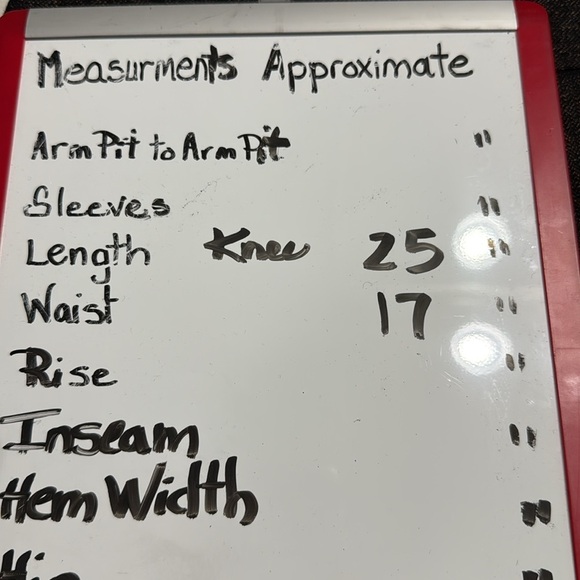 Measurments Approximate
Arm Pit to Arm Pit "
Sleeves "
Length Knee 25 "
Waist 17 "
Rise "
Inseam "
Hem Width "
Hip "